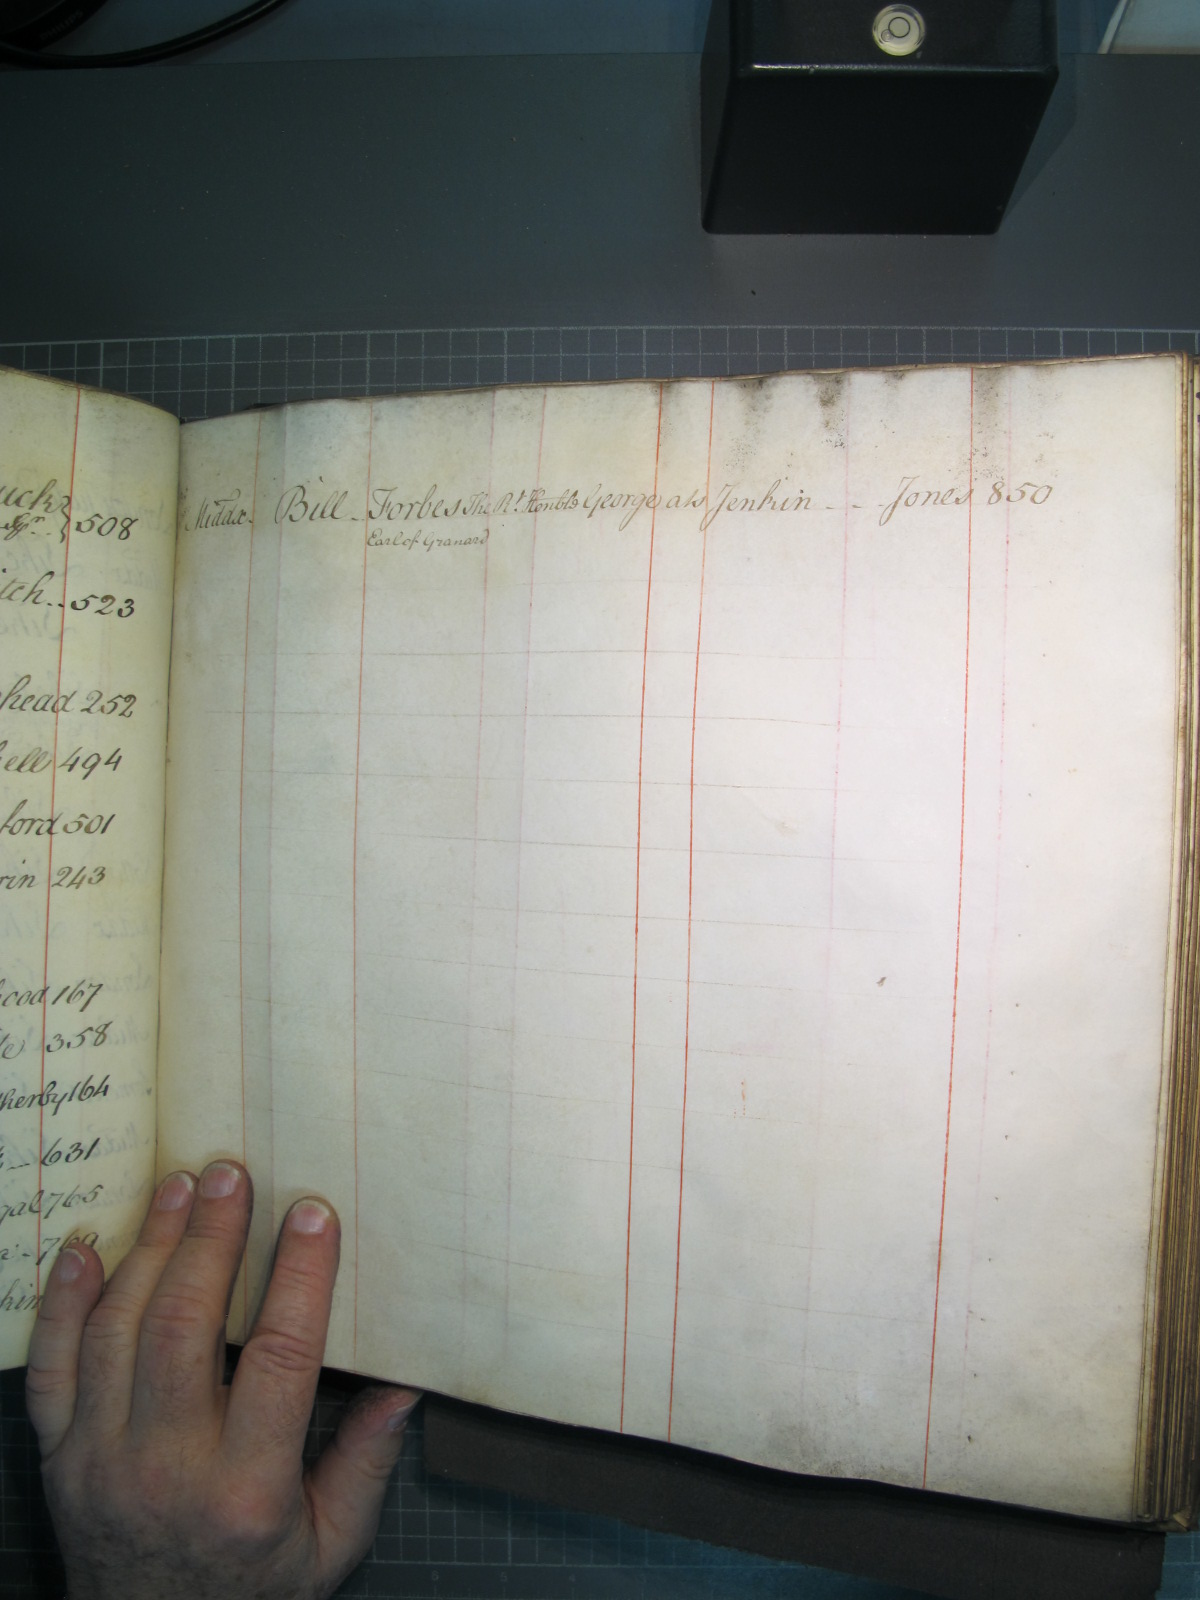 uck
508
itch.. 523
head 252
ell 494
ford 501
rin 243
ood 167
358
herby 164
631
gal 765
769
kin
Middx. Bill - Forbes The Rt. Honble George ats Jenkin - - Jones 850
Earl of Granard